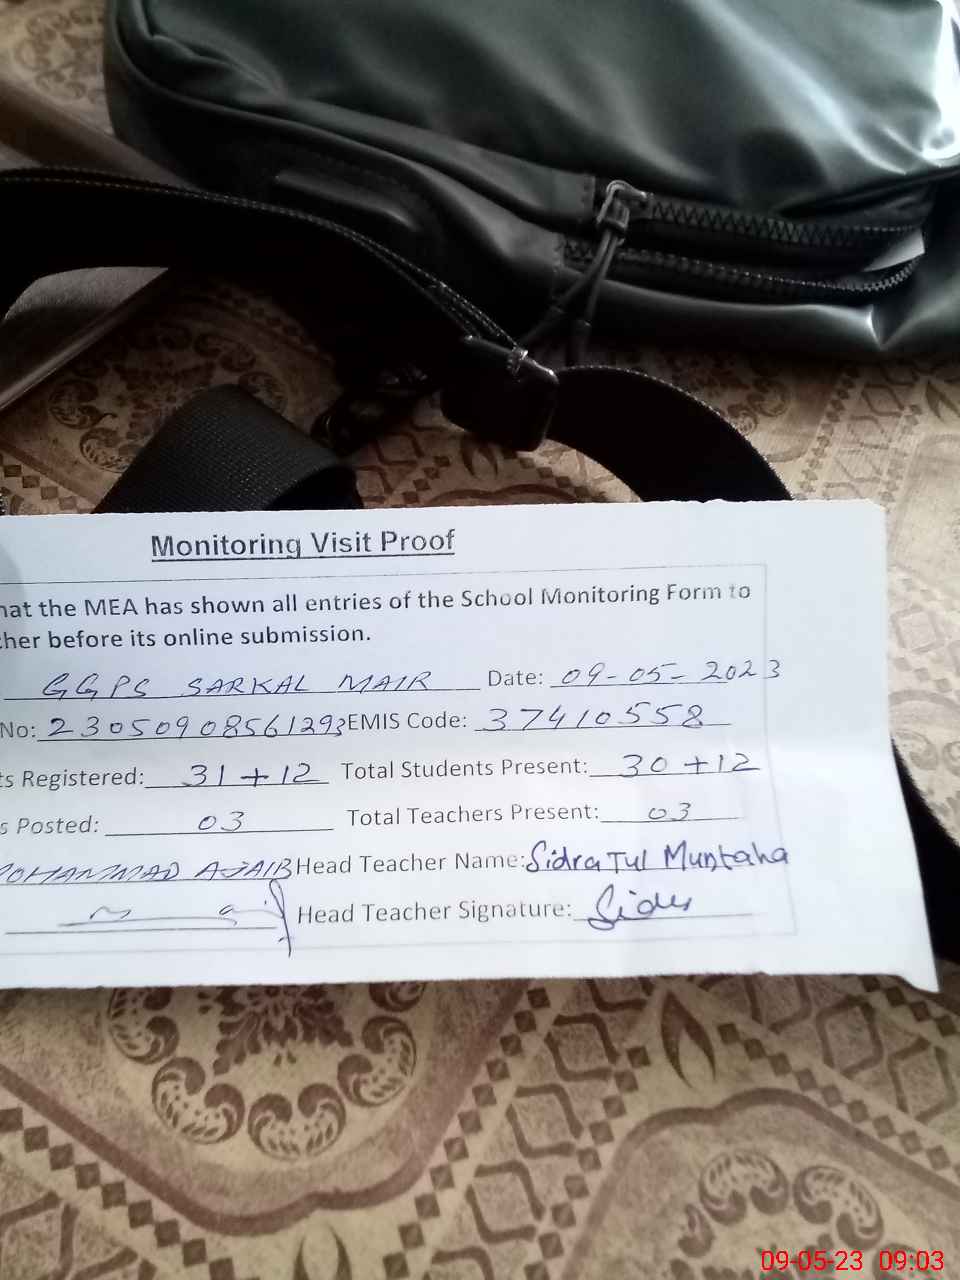 Monitoring Visit Proof
hat the MEA has shown all entries of the School Monitoring Form to
cher before its online submission.
GGPS SARKAL MAIR Date: 09-05-2023
No: 23050908561293 EMIS Code: 37410558
ts Registered: 31+12 Total Students Present: 30+12
s Posted: 03 Total Teachers Present: 03
MOHAMMAD AJAIB Head Teacher Name: Sidra Tul Muntaha
Head Teacher Signature: Sidra
09-05-23 09:03